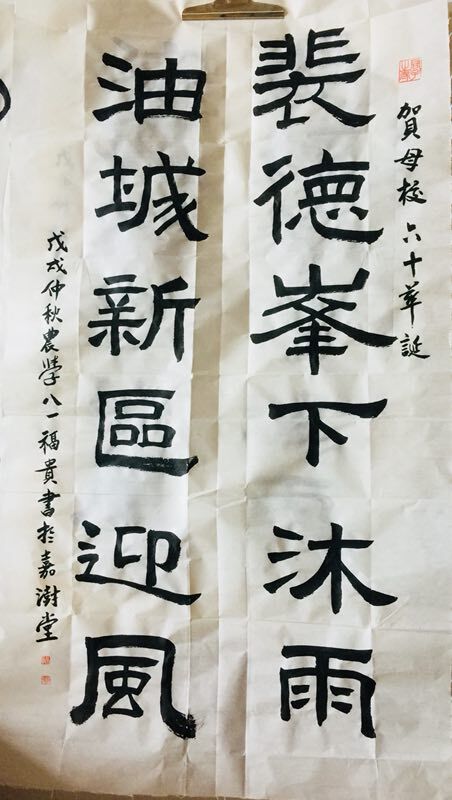 賀母校六十華誕
裴德峯下沐雨
油城新區迎風
戊戌仲秋農學八一福貴書於嘉澍堂